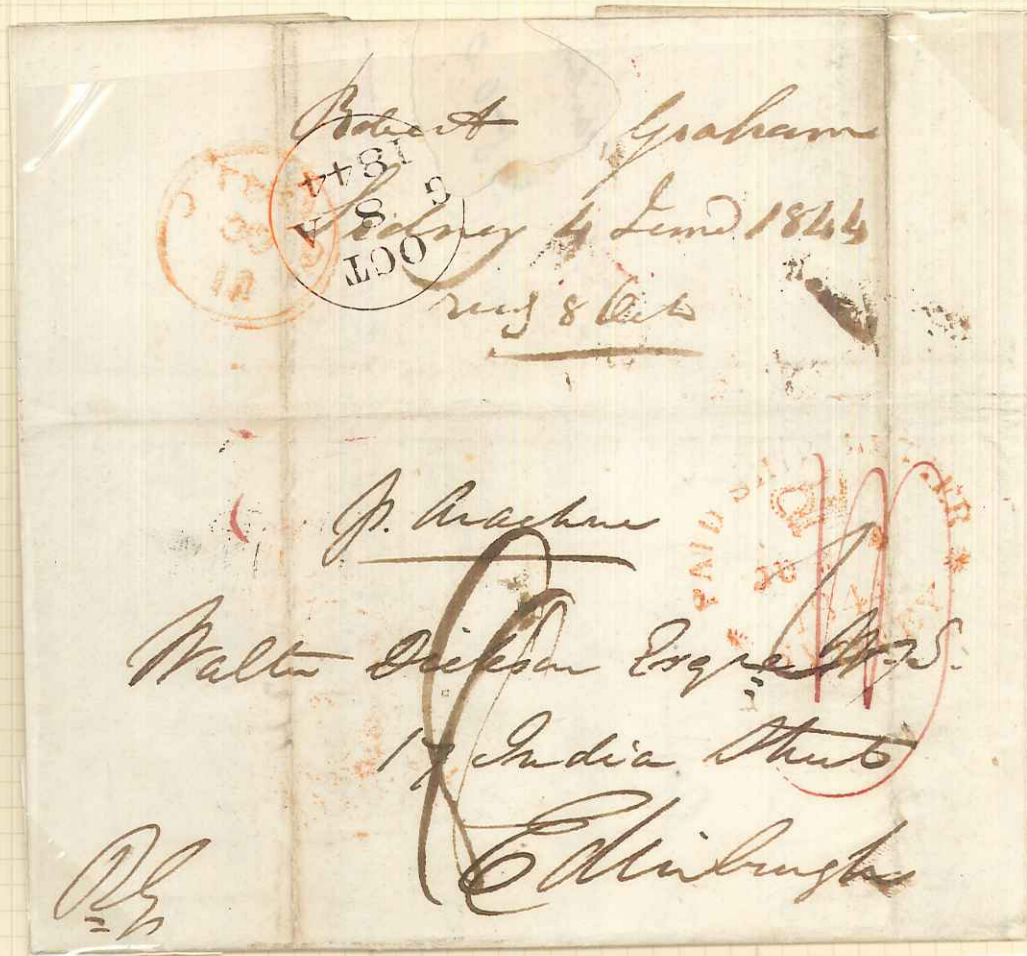 Robert Graham
Sidney 4 June 1844
8 Oct
OCT
8 A
1844
G
p. Arachne
PAID SHIP LETTER
Walter Dickson Esqre W.S.
17 India Street
Edinburgh
RG